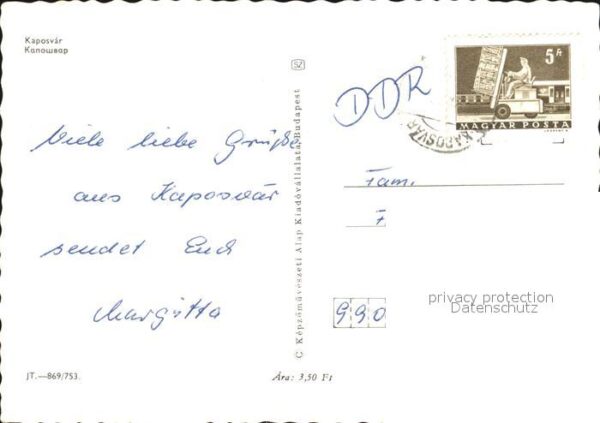 Kaposvár
Капошвар
SZ
DDR
5 Ft
MAGYAR POSTA
KAPOSVÁR
Viele liebe Grüße
aus Kaposvár
sendet Euch
Margitta
C Képzőművészeti Alap Kiadóvállalata, Budapest
Fam.
990
privacy protection
Datenschutz
JT.—869/753.
Ára: 3,50 Ft